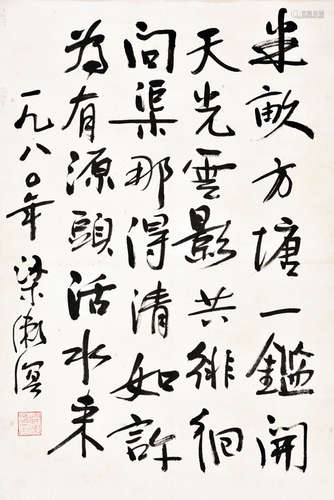 半畝方塘一鑑開
天光雲影共徘徊
問渠那得清如許
為有源頭活水来
一九八〇年
梁漱溟